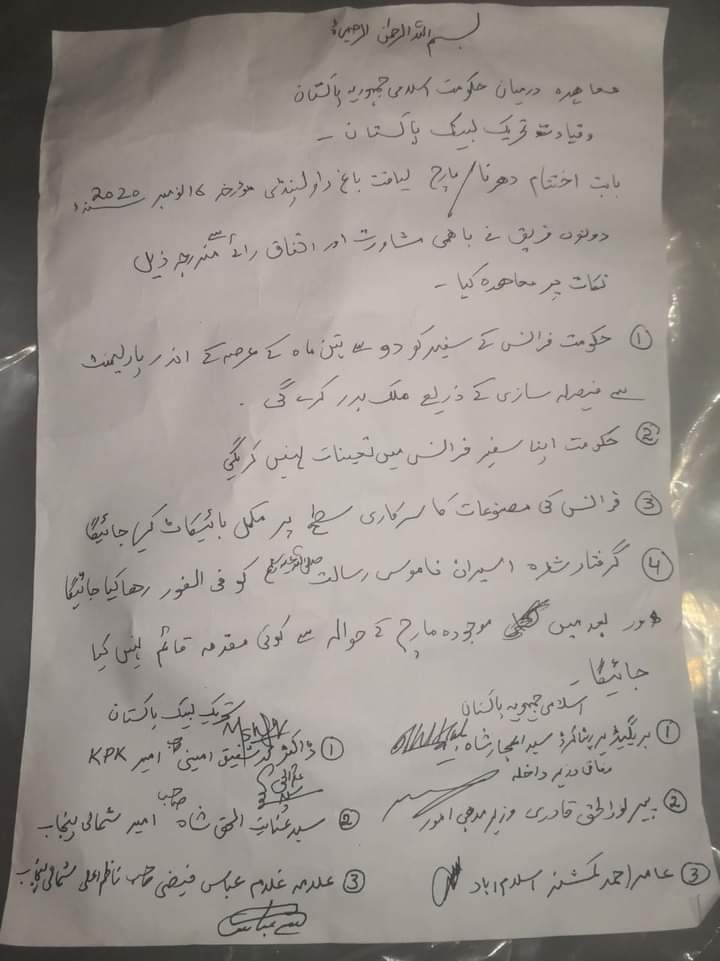 بسم اللہ الرحمن الرحیم
معاہدہ درمیان حکومت اسلامی جمہوریہ پاکستان
وقیادت تحریک لبیک پاکستان ۔
بابت اختتام دھرنا/مارچ لیاقت باغ راولپنڈی مؤرخہ 16 نومبر 2020
دونوں فریق نے باھمی مشاورت اور اتفاق رائے سے مندرجہ ذیل
نکات پر معاھدہ کیا ۔
① حکومت فرانس کے سفیر کو دو سے تین ماہ کے عرصہ کے اندر پارلیمنٹ
سے فیصلہ سازی کے ذریعے ملک بدر کرے گی ۔
② حکومت اپنا سفیر فرانس میں تعینات نہیں کریگی
③ فرانس کی مصنوعات کا سرکاری سطح پر مکمل بائیکاٹ کیا جائیگا
④ گرفتار شدہ اسیران ناموس رسالت صلی اللہ علیہ وسلم کو فی الفور رھا کیا جائیگا
اور بعد میں موجودہ مارچ کے حوالہ سے کوئی مقدمہ قائم نہیں کیا
جائیگا ۔
اسلامی جمہوریہ پاکستان
① بریگیڈیر ریٹائرڈ سید اعجاز شاہ
وفاقی وزیر داخلہ
② پیر نورالحق قادری وزیر مذہبی امور
③ عامر احمد کمشنر اسلام اباد
تحریک لبیک پاکستان
① ڈاکٹر محمد شفیق امینی صاحب امیر KPK
② سید عنایت الحق شاہ صاحب امیر شمالی پنجاب
③ علامہ غلام عباس فیضی صاحب ناظم اعلی شمالی پنجاب